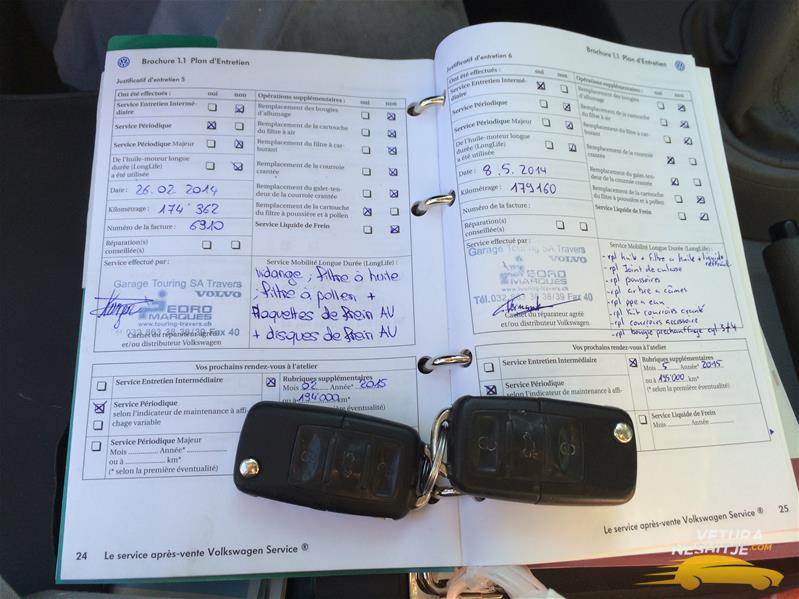 Brochure 1.1 Plan d'Entretien
Justificatif d'entretien 5
Ont été effectués : oui non
Service Entretien Intermé-
diaire
Service Périodique
Service Périodique Majeur
De l'huile-moteur longue
durée (LongLife)
a été utilisée
Date : 26.02 2014
Kilométrage : 174' 362
Numéro de la facture : 6910
Réparation(s)
conseillée(s)
Opérations supplémentaires : oui non
Remplacement des bougies
d'allumage
Remplacement de la cartouche
du filtre à air
Remplacement du filtre à car-
burant
Remplacement de la courroie
crantée
Remplacement du galet-ten-
deur de la courroie crantée
Remplacement de la cartouche
du filtre à poussière et à pollen
Service Liquide de Frein
Service effectué par :
Garage Touring SA Travers
VOLVO
PEDRO
MARQUES
www.touring-travers.ch
Fax 40
Carnet du réparateur agréé
et/ou distributeur Volkswagen
Service Mobilité Longue Durée (LongLife) :
vidange ; filtre à huile
; filtre à pollen +
plaquettes de frein AV
+ disques de frein AV
Vos prochains rendez-vous à l'atelier
Service Entretien Intermédiaire
Service Périodique
selon l'indicateur de maintenance à affi-
chage variable
Service Périodique Majeur
Mois Année*
ou à km*
(* selon la première éventualité)
Rubriques supplémentaires
Mois 02 Année* 2015
ou à 194000 km*
24 Le service après-vente Volkswagen Service ®
Brochure 1.1 Plan d'Entretien
Justificatif d'entretien 6
Ont été effectués : oui non
Service Entretien Intermé-
diaire
Service Périodique
Service Périodique Majeur
De l'huile-moteur longue
durée (LongLife)
a été utilisée
Date : 8.5.2014
Kilométrage : 179160
Numéro de la facture :
Réparation(s)
conseillée(s)
Opérations supplémentaires : oui non
Remplacement des bougies
d'allumage
Remplacement de la cartouche
du filtre à air
Remplacement du filtre à car-
burant
Remplacement de la courroie
crantée
Remplacement du galet-ten-
deur de la courroie crantée
Remplacement de la cartouche
du filtre à poussière et à pollen
Service Liquide de Frein
Service effectué par :
Garage Touring SA Travers
VOLVO
PEDRO
MARQUES
Fax 40
et/ou distributeur Volkswagen
Service Mobilité Longue Durée (LongLife) :
- rpl huile + filtre a huile + liquide
- rpl Joint de culasse
- rpl poussoirs
- rpl Arbre a câmes
- rpl kit courroie cranté
- rpl courroie accessoire
- rpl bougie prechauffage cyl 3/4
Vos prochains rendez-vous à l'atelier
Service Entretien Intermédiaire
Service Périodique
selon l'indicateur de maintenance à affi-
Rubriques supplémentaires
Mois 5 Année* 2015
ou à 195000 km*
(* selon la première éventualité)
Service Liquide de Frein
Mois Année
Le service après-vente Volkswagen Service ® 25
VETURA
NESHITJE.COM